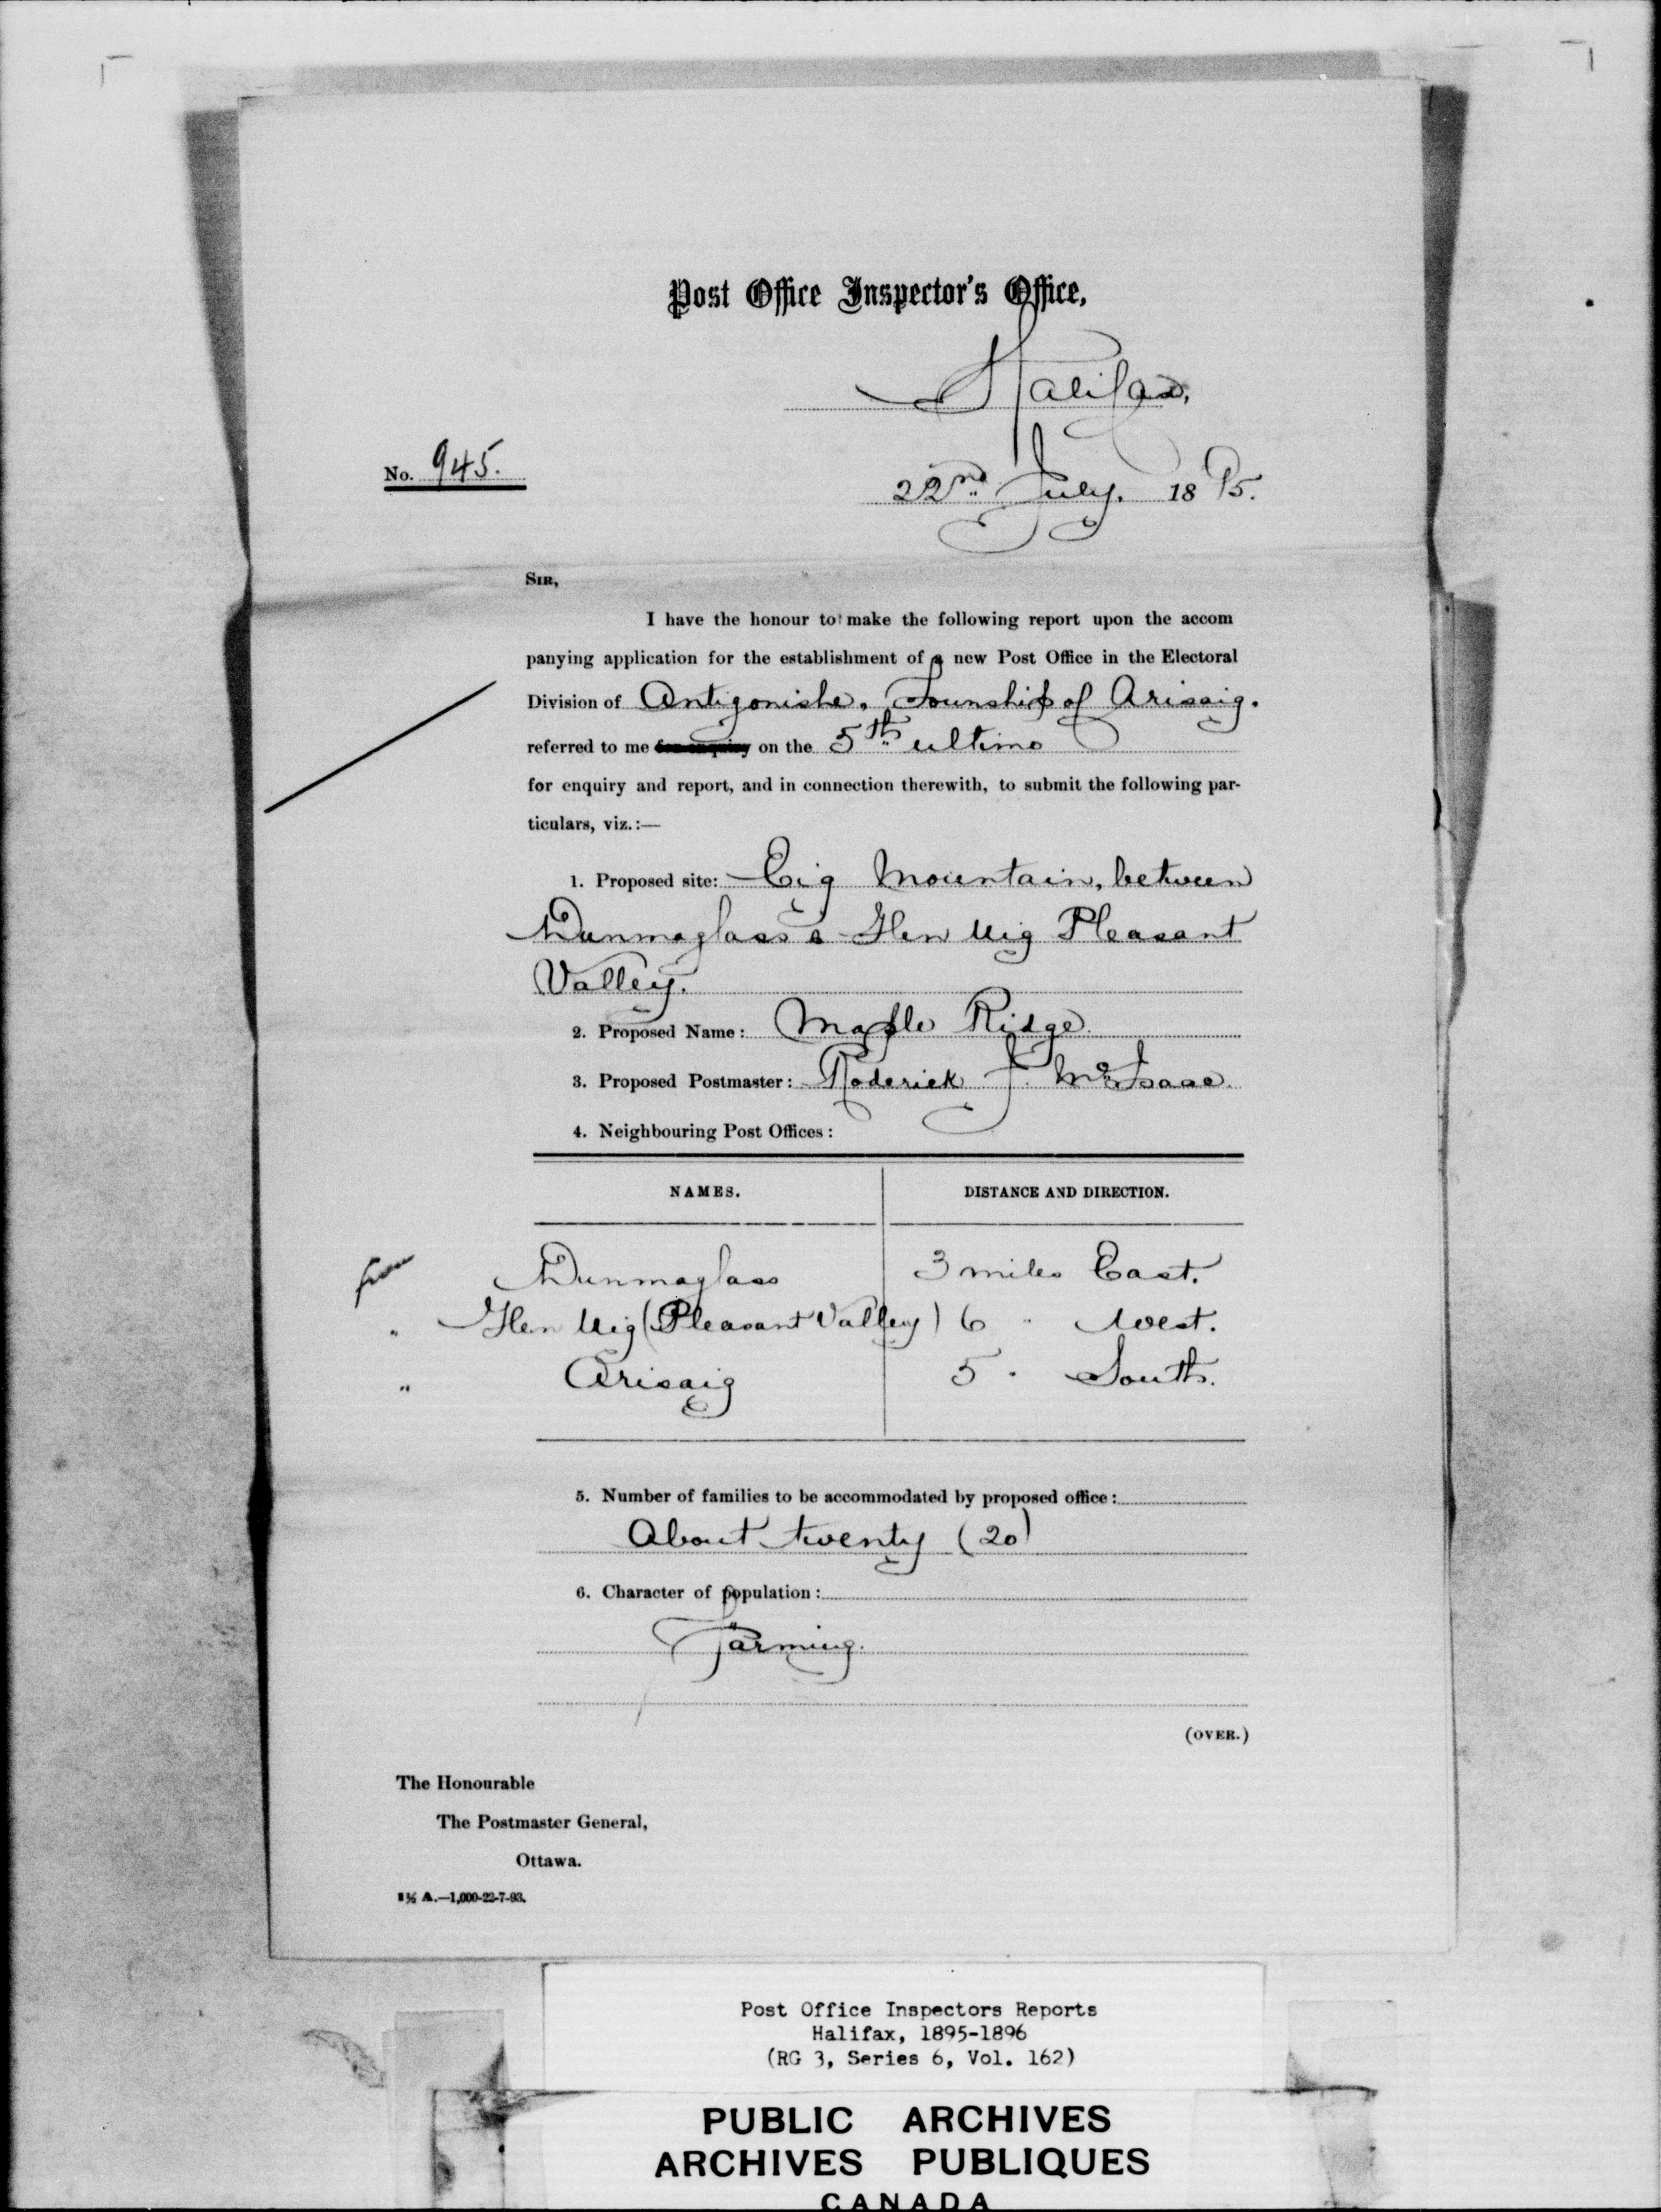 Post Office Inspector's Office,
Halifax,
No. 945.
22nd July. 1895.
SIR,
I have the honour to make the following report upon the accom
panying application for the establishment of a new Post Office in the Electoral
Division of Antigonishe. Township of Arisaig.
referred to me for enquiry on the 5th ultimo
for enquiry and report, and in connection therewith, to submit the following par-
ticulars, viz.:—
1. Proposed site: Eig Mountain, between
Dunmaglass & Glen Uig Pleasant
Valley.
2. Proposed Name: Maple Ridge.
3. Proposed Postmaster: Roderick J. McIsaac.
4. Neighbouring Post Offices:
NAMES. DISTANCE AND DIRECTION.
from Dunmaglass 3 miles East.
" Glen Uig (Pleasant Valley) 6 " West.
" Arisaig 5 " South.
5. Number of families to be accommodated by proposed office:
About twenty (20)
6. Character of population:
Farming.
(OVER.)
The Honourable
The Postmaster General,
Ottawa.
½ A.—1,000-22-7-93.
Post Office Inspectors Reports
Halifax, 1895-1896
(RG 3, Series 6, Vol. 162)
PUBLIC ARCHIVES
ARCHIVES PUBLIQUES
CANADA